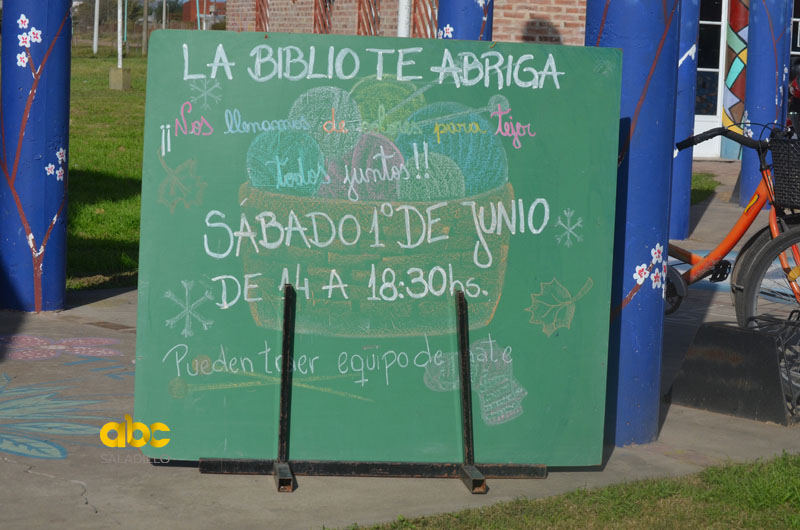 LA BIBLIO TE ABRIGA
¡¡Nos llenamos de colores para tejer
todos juntos!!
SÁBADO 1º DE JUNIO
DE 14 A 18:30hs.
Pueden traer equipo de mate
abc
SALADILLO